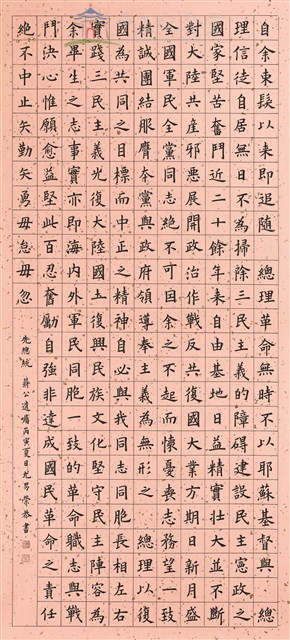 自余束髮以來即追隨　總理革命無時不以耶穌基督與　總
理信徒自居無日不為掃除三民主義的障礙建設民主憲政之
國家堅苦奮鬥近二十餘年來自由基地日益精實壯大並不斷
對大陸共產邪惡展開政治作戰反共復國大業方期日新月盛
全國軍民全黨同志絕不可因余之不起而懷憂喪志務望一致
精誠團結服膺本黨與政府領導奉主義為無形之　總理以復
國為共同之目標而中正之精神自必與我同志同胞長相左右
實踐三民主義光復大陸國土復興民族文化堅守民主陣容為
余畢生之志事實亦即海內外軍民同胞一致的革命職志與戰
鬥決心惟願愈益堅此百忍奮勵自強非達成國民革命之責任
絕不中止矢勤矢勇毋怠毋忽
先總統　蔣公遺囑丙寅夏日尤男榮恭書